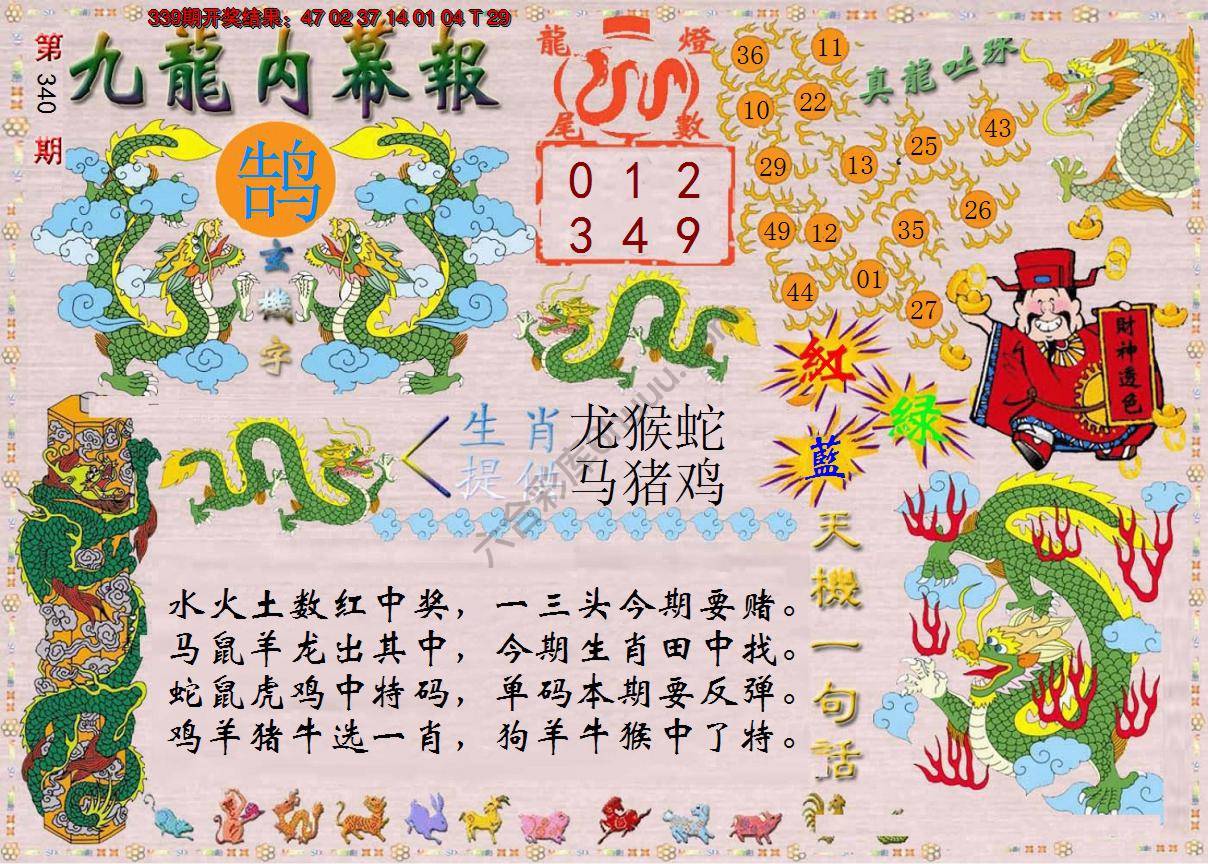 339期开奖结果：47 02 37 14 01 04 T 29
第340期
九龍内幕報
鹄
玄機字
龍燈
尾數
0 1 2
3 4 9
真龍吐珠
36
11
10
22
25
43
29
13
26
49
12
35
44
01
27
財神透色
紅
綠
藍
生肖 龙猴蛇
提供 马猪鸡
六合彩库
天機一句話
水火土数红中奖，一三头今期要赌。
马鼠羊龙出其中，今期生肖田中找。
蛇鼠虎鸡中特码，单码本期要反弹。
鸡羊猪牛选一肖，狗羊牛猴中了特。